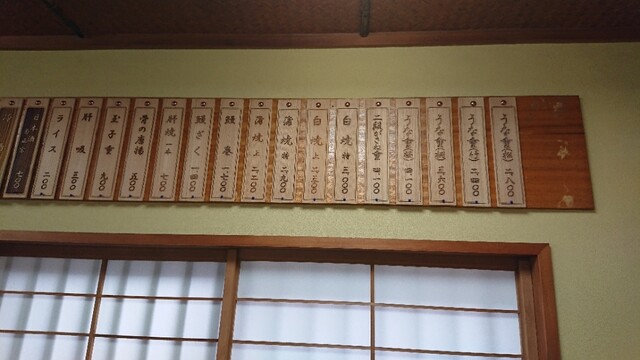 うな重
うな重
うな重 三六〇〇
うな重 四一〇〇
二段うな重 四一〇〇
白焼 特 三〇〇〇
白焼 上 二三〇〇
蒲焼 特 二九〇〇
蒲焼 上 二二〇〇
鰻巻 一七〇〇
鰻ざく 一四〇〇
肝焼 一本 七〇〇
骨の唐揚 五〇〇
玉子重 九〇〇
肝吸 三〇〇
ライス 二〇〇
七〇〇